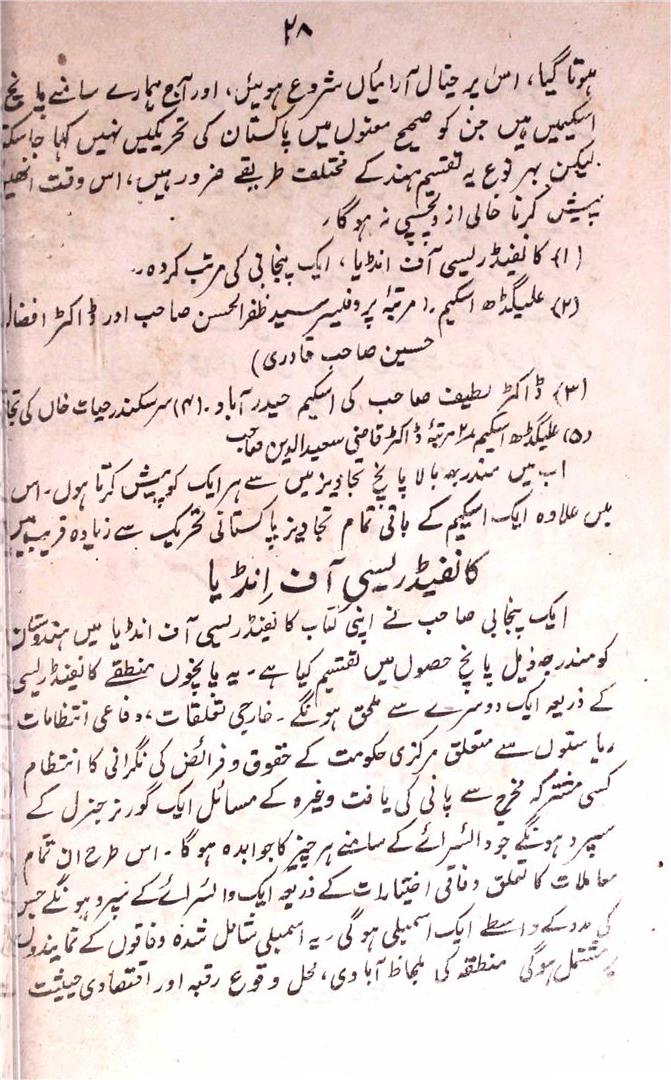 ۲۸
ہوتا گیا، اس پر خیال آرائیاں شروع ہوئیں، اور آج ہمارے سامنے پانچ
اسکیمیں ہیں جن کو صحیح معنوں میں پاکستان کی تحریکیں نہیں کہا جا
لیکن بہر نوع یہ تقسیم ہند کے مختلف طریقے ضرور ہیں، اس وقت انھیں
پیش کرنا خالی از دلچسپی نہ ہوگا۔
(۱) کانفیڈریسی آف انڈیا، ایک پنجابی کی مرتب کردہ۔
(۲) علیگڈھ اسکیم۔ (مرتبۂ پروفیسر سید ظفر الحسن صاحب اور ڈاکٹر افضال
حسین صاحب قادری)
(۳) ڈاکٹر لطیف صاحب کی اسکیم حیدرآباد۔ (۴) سر سکندر حیات خاں کی
(۵) علیگڈھ اسکیم ۲ مرتبۂ ڈاکٹر قاضی سعید الدین صاحب
اب میں مندرجہ بالا پانچ تجاویز میں سے ہر ایک کو پیش کرتا ہوں۔ اس
میں علاوہ ایک اسکیم کے باقی تمام تجاویز پاکستانی تحریک سے زیادہ قریب ہیں
کانفیڈریسی آف اِنڈیا
ایک پنجابی صاحب نے اپنی کتاب کانفیڈریسی آف انڈیا میں ہندوستان
کو مندرجہ ذیل پانچ حصوں میں تقسیم کیا ہے۔ یہ پانچوں منطقے کانفیڈریسی
کے ذریعہ ایک دوسرے سے ملحق ہونگے۔ خارجی تعلقات، دفاعی انتظامات
ریاستوں سے متعلق مرکزی حکومت کے حقوق و فرائض کی نگرانی کا انتظام
کسی مشترکہ مخرج سے پانی کی یافت وغیرہ کے مسائل ایک گورنر جنرل کے
سپرد ہونگے جو وائسرائے کے سامنے ہر چیز کا جوابدہ ہوگا۔ اس طرح ان تمام
معاملات کا تعلق وفاقی اختیارات کے ذریعہ ایک وائسرائے کے سپرد ہونگے جس
کی مدد کے واسطے ایک اسمبلی ہوگی۔ یہ اسمبلی شامل شدہ وفاقوں کے نمایندوں
پر مشتمل ہوگی منطقہ کی بلحاظ آبادی، محل وقوع رقبہ اور اقتصادی حیثیت